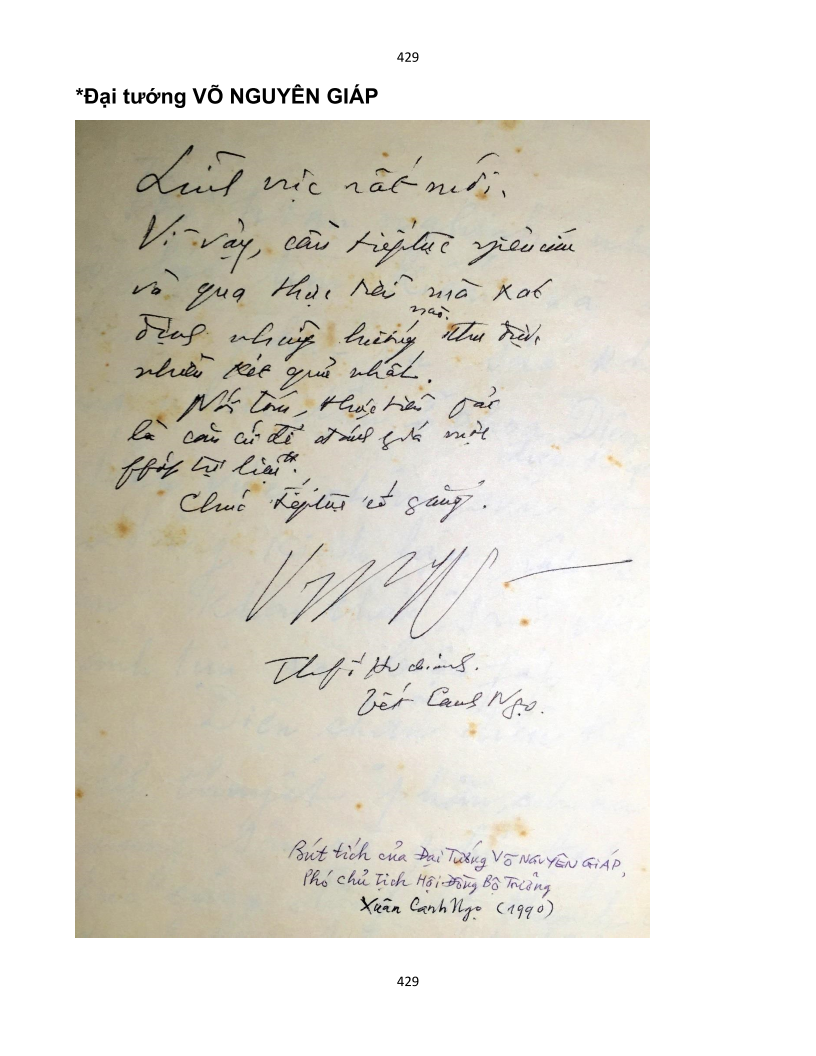 429
*Đại tướng VÕ NGUYÊN GIÁP
Lĩnh vực rất mới.
Vì vậy, cần tiếp tục nghiên cứu
và qua thực tiễn mà xác
định những hướng nào thu được
nhiều kết quả nhất.
Nói tóm, thực tiễn
là căn cứ để đánh giá một
trị liệu.
Chúc tiếp tục cố gắng.
TP Hồ Chí Minh.
Tết Canh Ngọ.
Bút tích của Đại Tướng VÕ NGUYÊN GIÁP,
Phó chủ tịch Hội Đồng Bộ Trưởng
Xuân Canh Ngọ (1990)
429